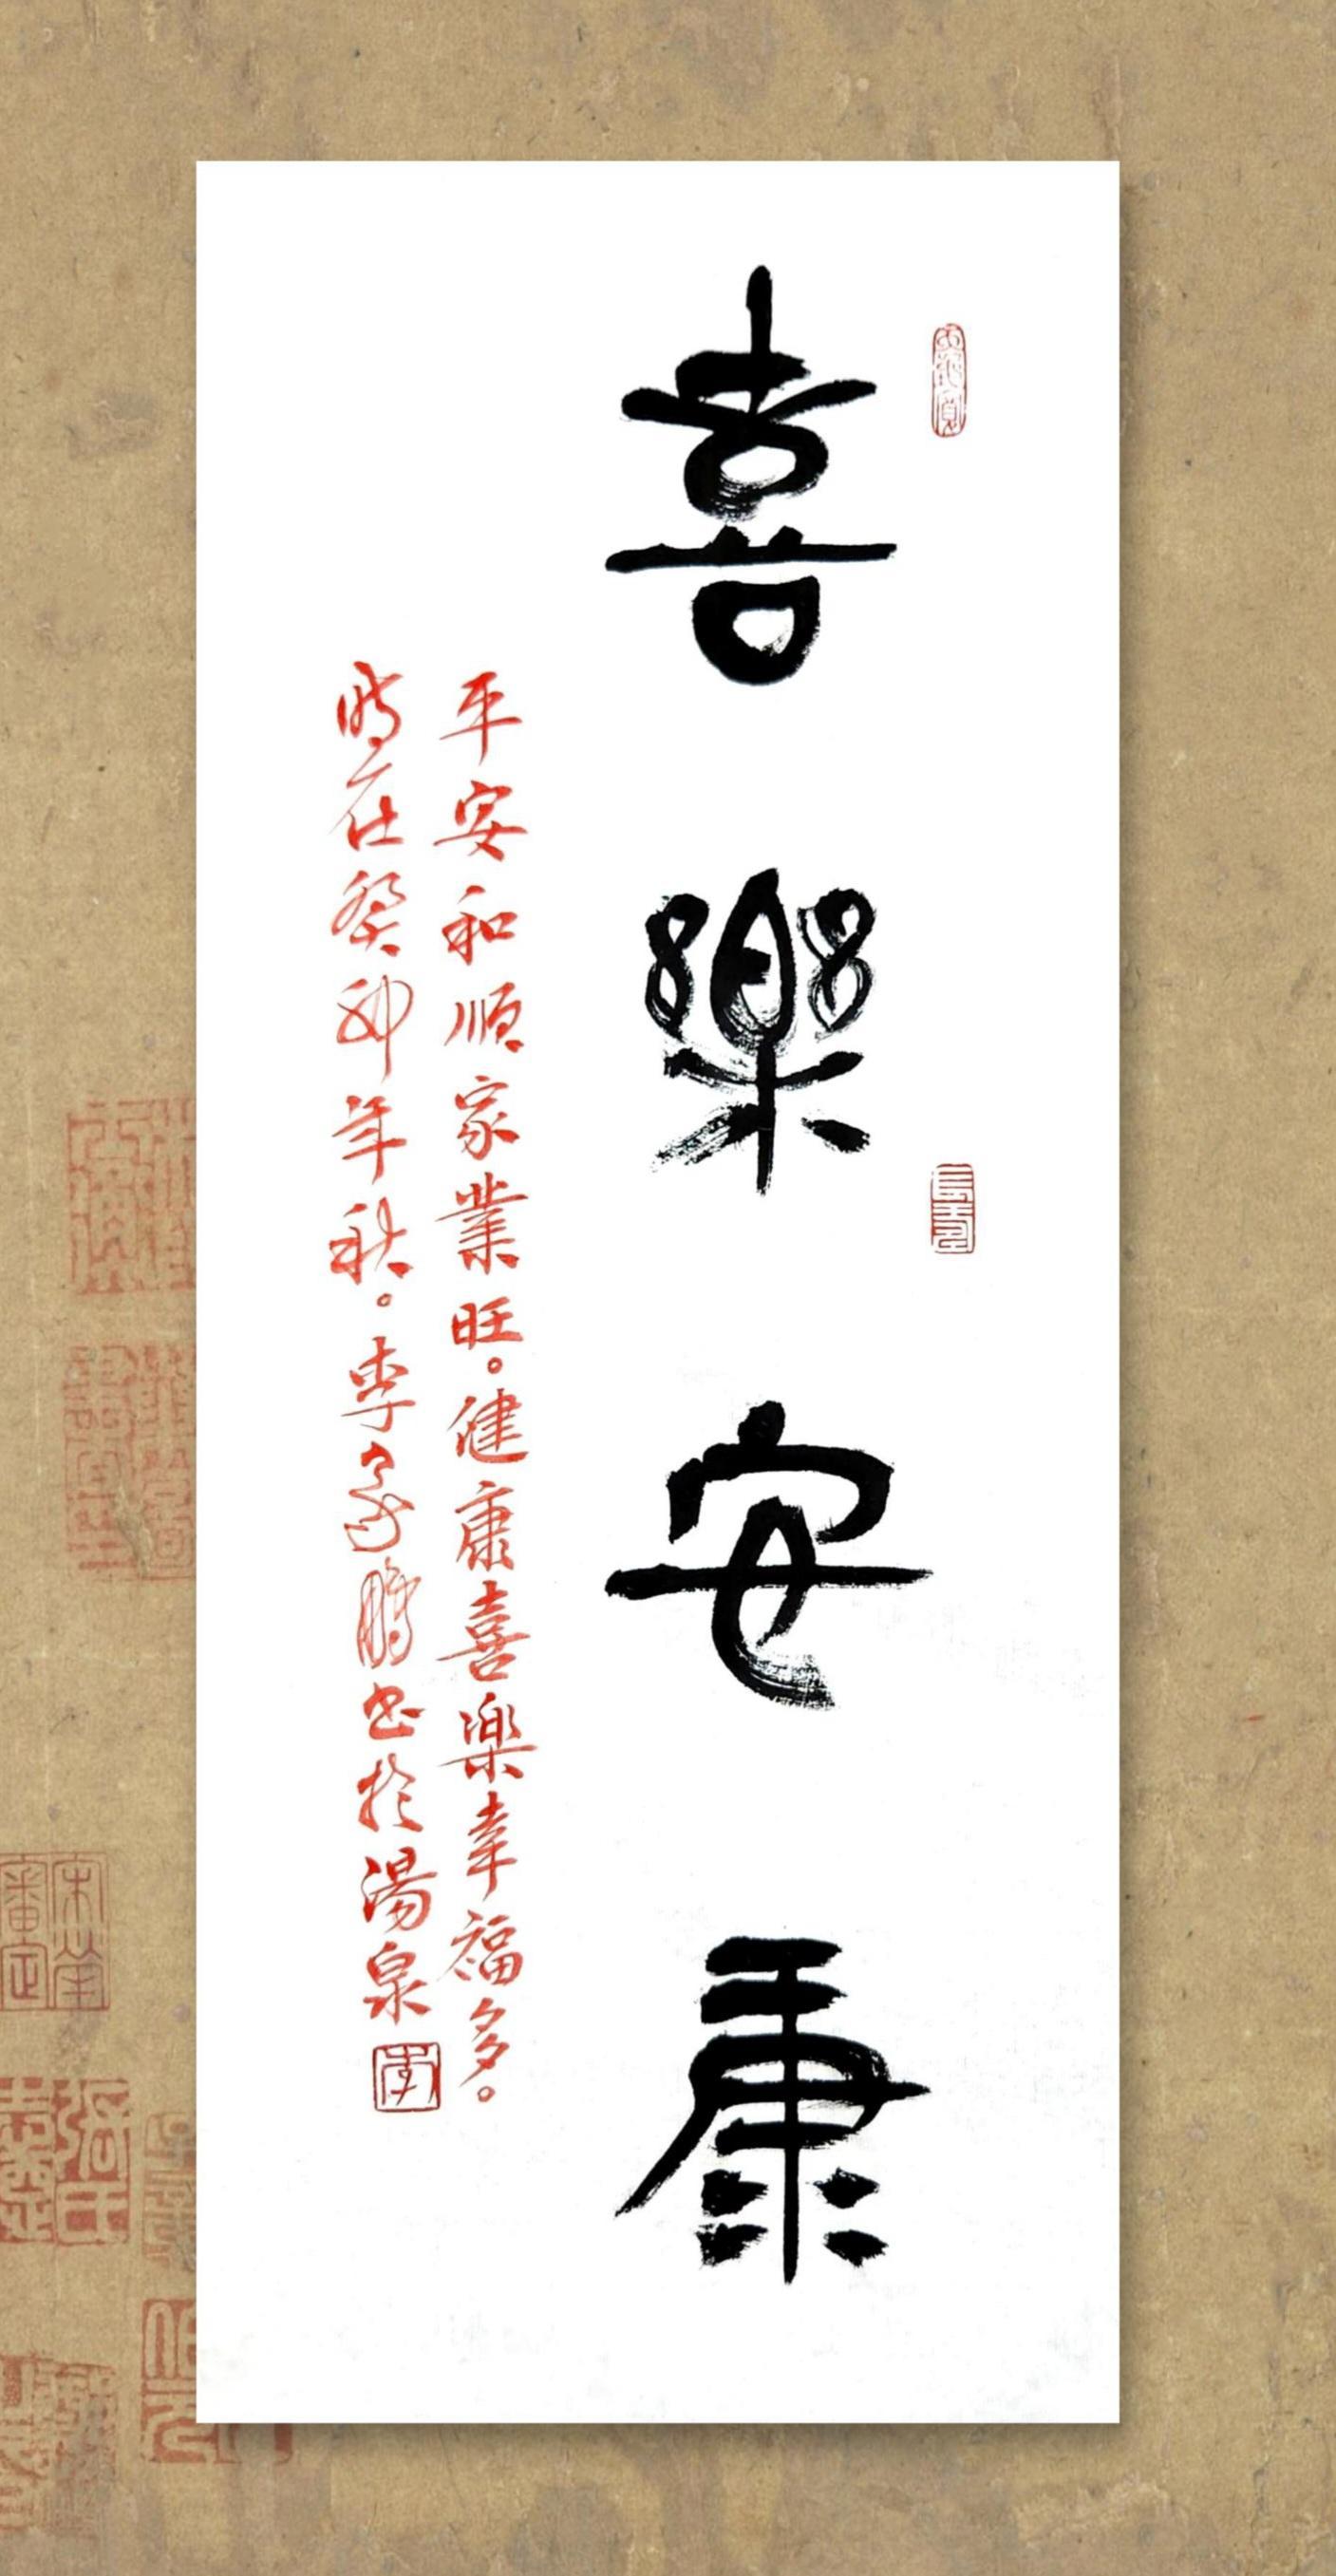 喜樂安康
平安和順家業旺。健康喜樂幸福多。
時在癸卯年秋。李家鵬书於湯泉
李